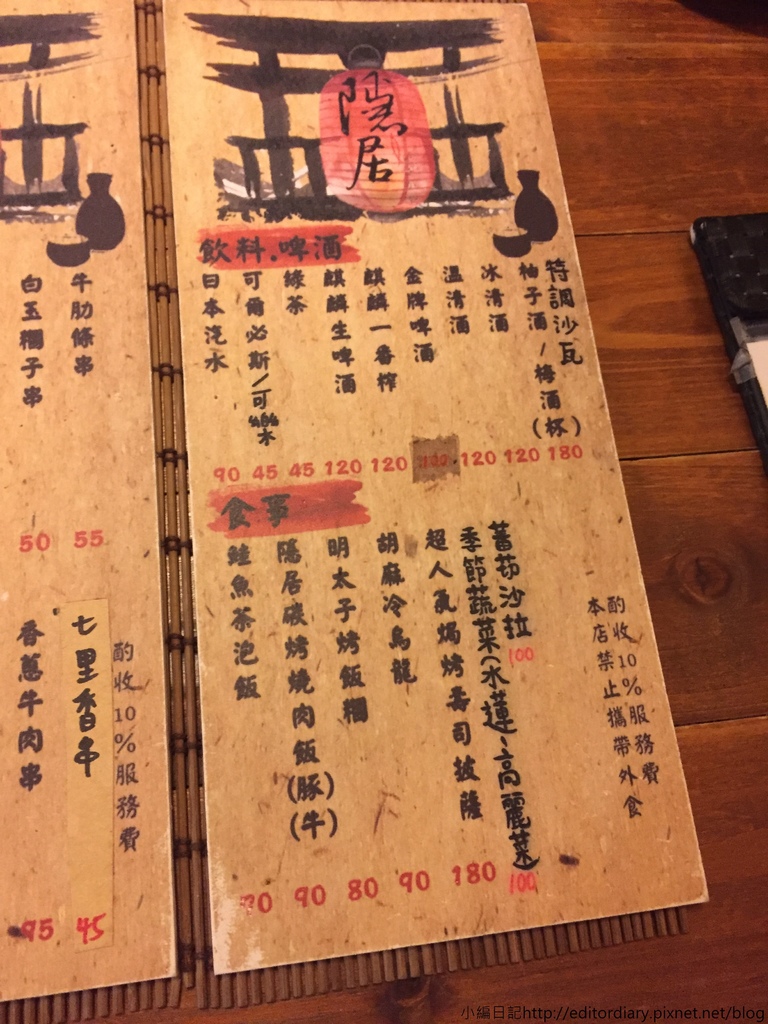 隱居
飲料.啤酒
特調沙瓦
柚子酒/梅酒(杯)
冰清酒
溫清酒
金牌啤酒
麒麟一番榨
麒麟生啤酒
綠茶
可爾必斯/可樂
日本汽水
180
120
120
120
120
45
45
90
食事
蕃茄沙拉 100
季節蔬菜(水蓮、高麗菜) 100
超人氣焗烤壽司披薩
胡麻冷烏龍
明太子烤飯糰
隱居碳烤燒肉飯(豚)(牛)
鮭魚茶泡飯
180
90
80
90
70
酌收10%服務費
本店禁止攜帶外食
牛肋條串
白玉糰子串
55
50
酌收10%服務費
七里香串
香蔥牛肉串
45
95
小編日記http://editordiary.pixnet.net/blog